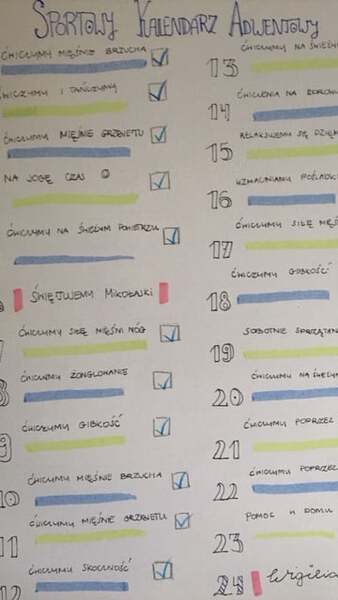 SPORTOWY KALENDARZ ADWENTOWY
ĆWICZYMY MIĘŚNIE BRZUCHA
ĆWICZYMY I TAŃCZYMY
ĆWICZYMY MIĘŚNIE GRZBIETU
NA JOGĘ CZAS
ĆWICZYMY NA ŚWIEŻYM POWIETRZU
ŚWIĘTUJEMY MIKOŁAJKI
7 ĆWICZYMY SIŁĘ MIĘŚNI NÓG
8 ĆWICZYMY ŻONGLOWANIE
9 ĆWICZYMY GIBKOŚĆ
10 ĆWICZYMY MIĘŚNIE BRZUCHA
11 ĆWICZYMY MIĘŚNIE GRZBIETU
12 ĆWICZYMY SKOCZNOŚĆ
13 ĆWICZYMY NA
14 ĆWICZENIA NA
15 RELAKSUJEMY SIĘ
16 WZMACNIAMY POŚLADKI
17 ĆWICZYMY SIŁĘ
18 ĆWICZYMY GIBKOŚĆ
19 SOBOTNIE
20 ĆWICZYMY NA
21 ĆWICZYMY POPRZEZ
22 ĆWICZYMY POPRZEZ
23 POMOC W DOMU
24 Wigilia